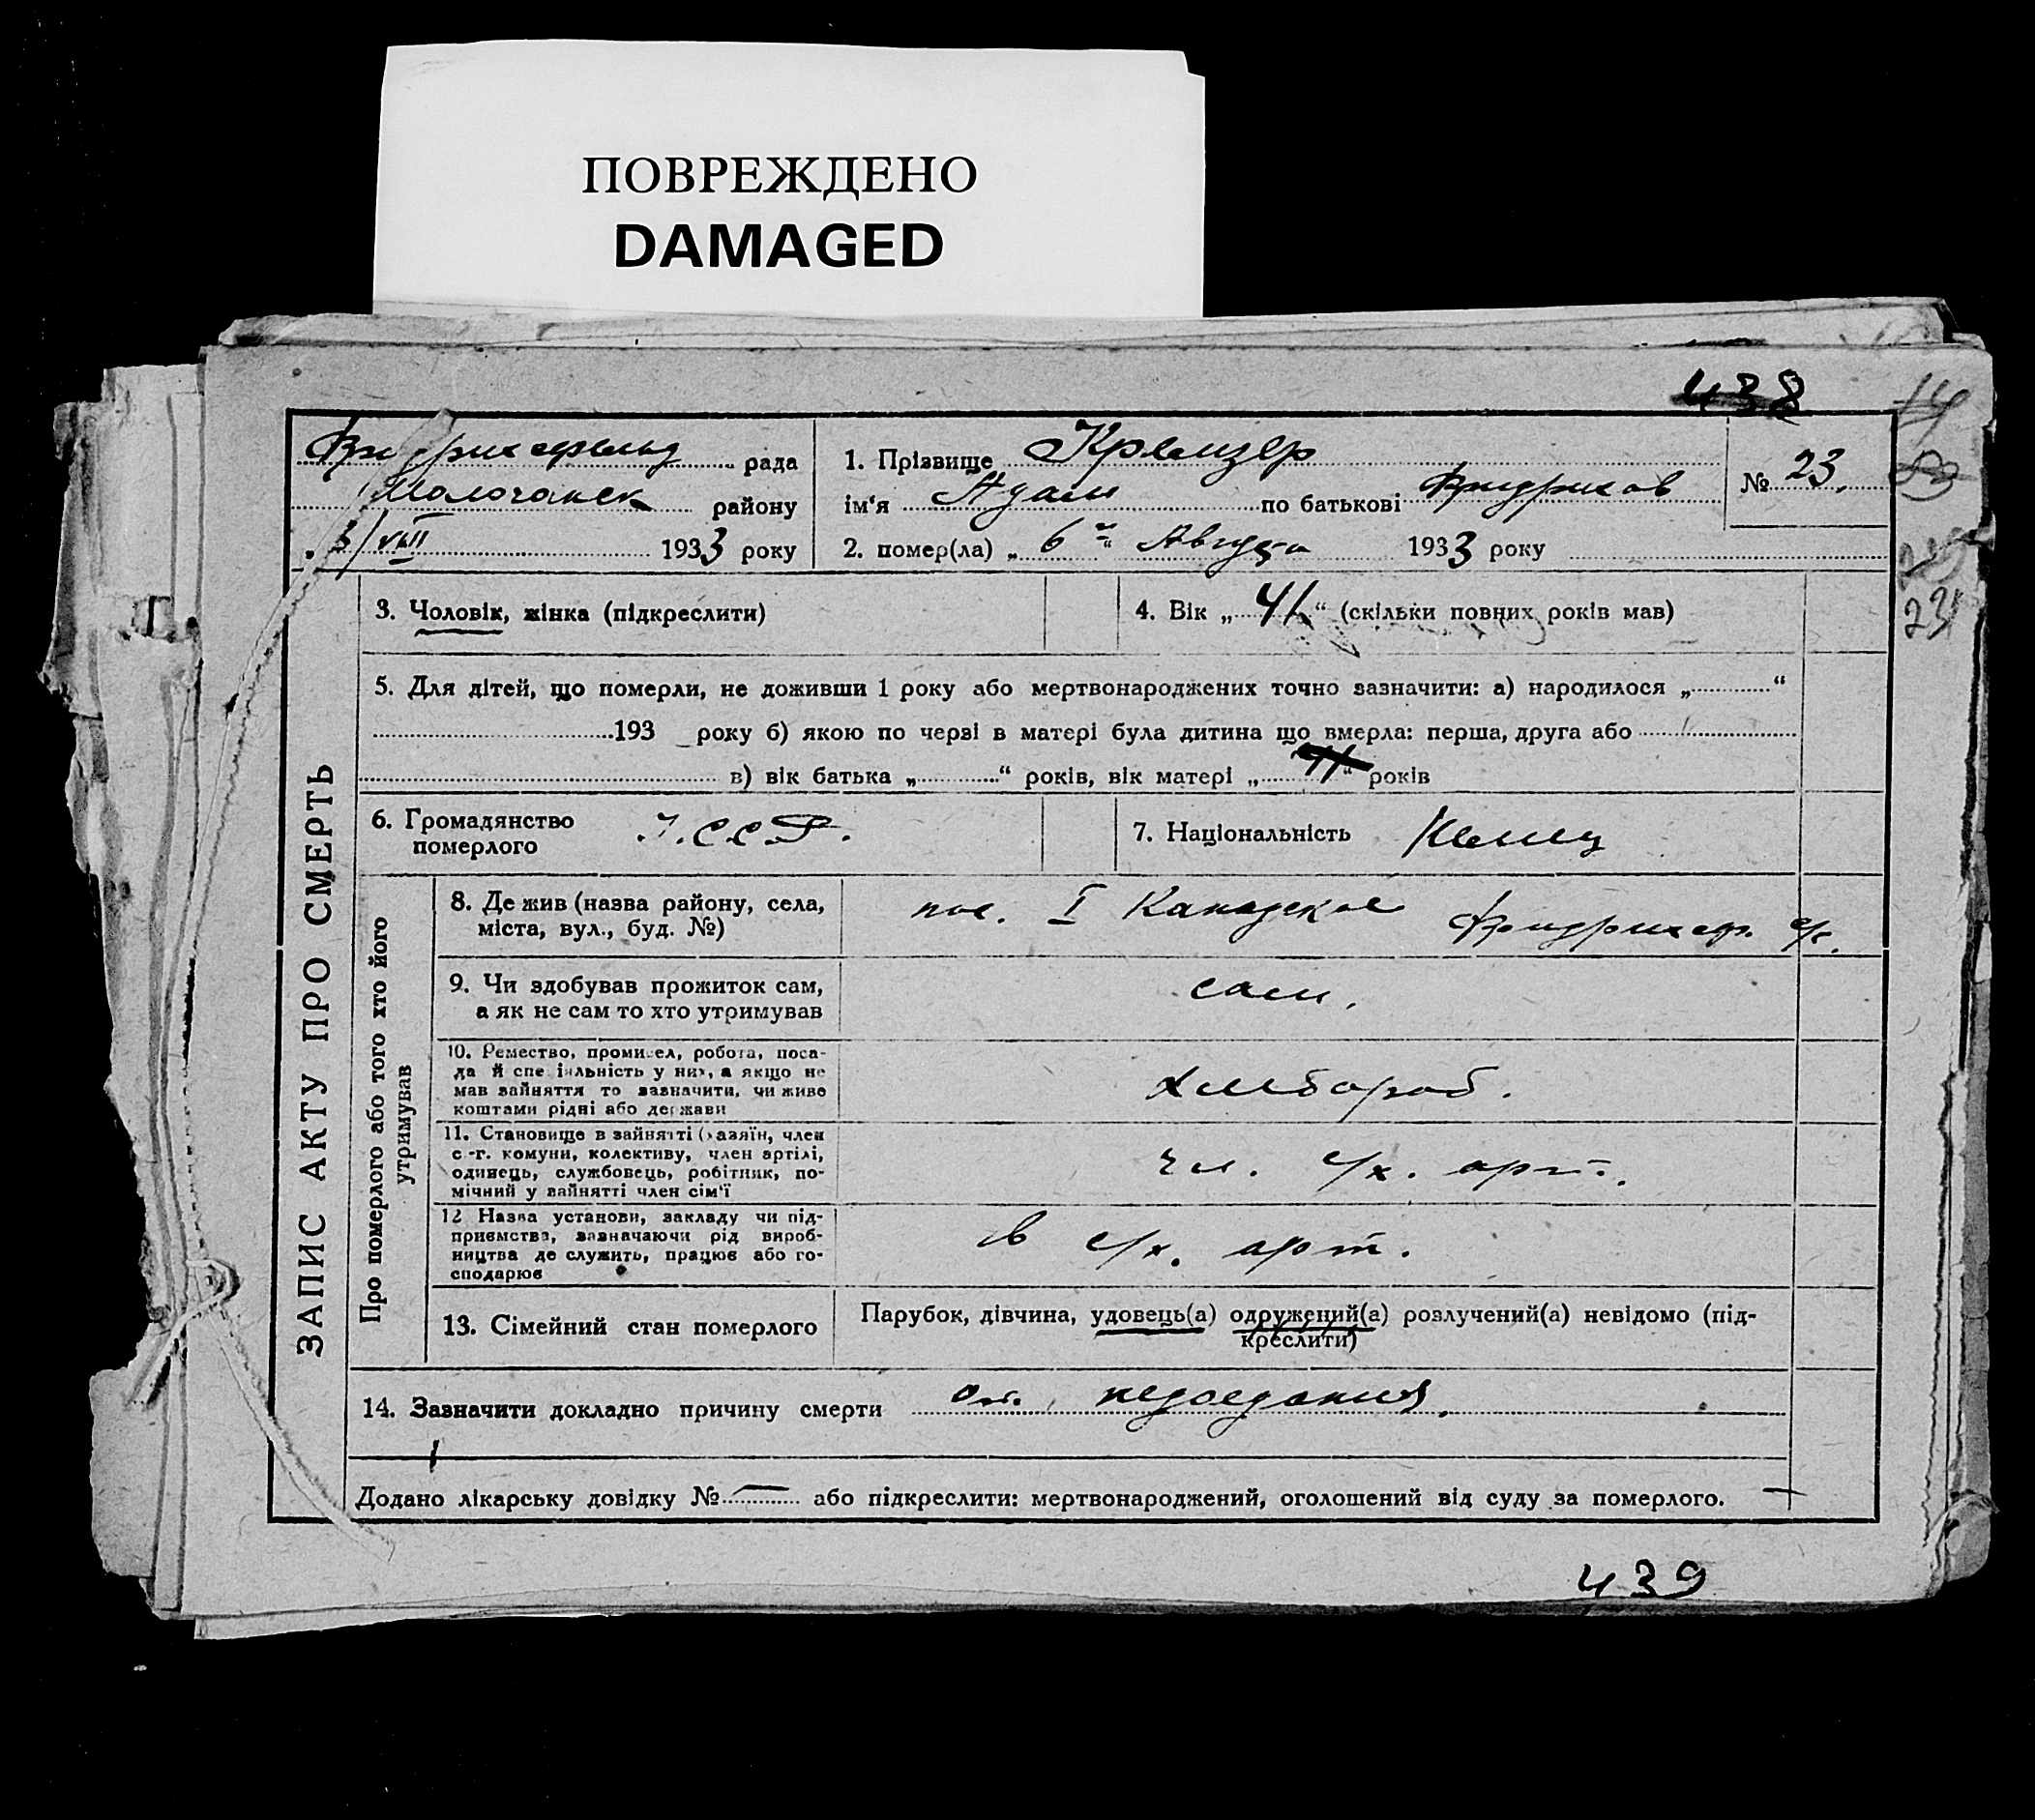 ПОВРЕЖДЕНО
DAMAGED
438
рада
Молочанск району
VIII 1933 року
1. Прізвище Кремзер
ім'я Адам по батькові Фридрихов
2. помер(ла) „ 6го “ Августа 1933 року
№ 23.
23
3. Чоловік, жінка (підкреслити)
4. Вік „ 41 “ (скільки повних років мав)
5. Для дітей, що померли, не доживши 1 року або мертвонароджених точно зазначити: а) народилося „ “
193 року б) якою по черзі в матері була дитина що вмерла: перша, друга або
в) вік батька „ “ років, вік матері „ 41 “ років
6. Громадянство
померлого
У.С.С.Р.
7. Національність Немец
ЗАПИС АКТУ ПРО СМЕРТЬ
Про померлого або того хто його
утримував
8. Де жив (назва району, села,
міста, вул., буд. №)
пос. I Канадское Фридрихсф. с/с.
9. Чи здобував прожиток сам,
а як не сам то хто утримував
сам.
10. Ремество, промисел, робота, поса-
да й спеціяльність у них, а якщо не
мав зайняття то зазначити, чи живе
коштами рідні або держави
хлебороб.
11. Становище в зайнятті (хазяїн, член
с.-г. комуни, колективу, член артілі,
одинець, службовець, робітник, по-
мічний у зайнятті член сім'ї
чл. с/х. арт.
12 Назва установи, закладу чи під-
приємства, зазначаючи рід вироб-
ництва де служить, працює або го-
сподарює
в с/х. арт.
13. Сімейний стан померлого
Парубок, дівчина, удовець(а) одружений(а) розлучений(а) невідомо (під-
креслити)
14. Зазначити докладно причину смерти от недоедания.
Додано лікарську довідку № — або підкреслити: мертвонароджений, оголошений від суду за померлого.
439